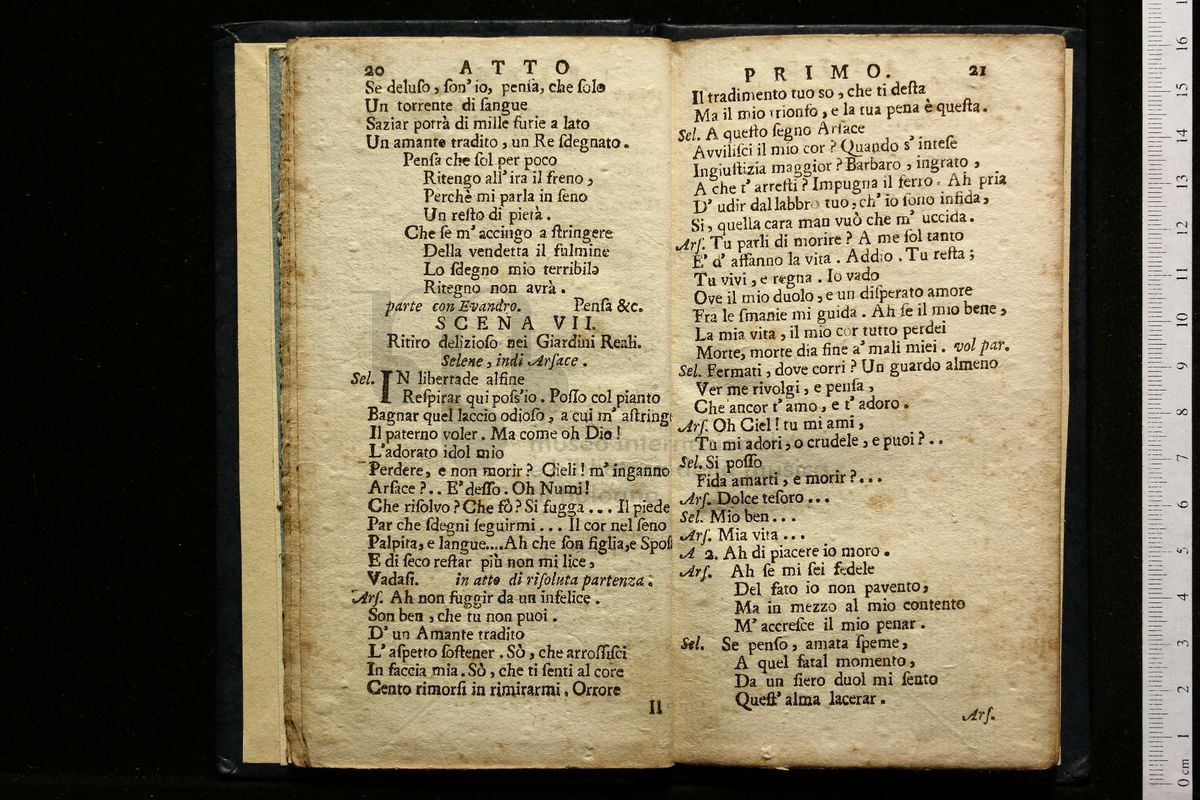 20 ATTO
Se deluſo, ſon' io, penſa, che ſolo
Un torrente di ſangue
Saziar potrà di mille furie a lato
Un amante tradito, un Re ſdegnato.
Penſa che ſol per poco
Ritengo all' ira il freno,
Perchè mi parla in ſeno
Un reſto di pietà.
Che ſe m' accingo a ſtringere
Della vendetta il fulmine
Lo ſdegno mio terribile
Ritegno non avrà.
parte con Evandro. Penſa &c.
SCENA VII.
Ritiro delizioſo nei Giardini Reali.
Selene, indi Arſace.
Sel. IN libertade alfine
Reſpirar qui poſs'io. Poſſo col pianto
Bagnar quel laccio odioſo, a cui m' aſtring
Il paterno voler. Ma come oh Dio!
L'adorato idol mio
Perdere, e non morir? Cieli! m' inganno
Arſace?.. E' deſſo. Oh Numi!
Che riſolvo? Che fò? Si fugga... Il piede
Par che ſdegni ſeguirmi... Il cor nel ſeno
Palpita, e langue....Ah che ſon figlia,e Spoſ
E di ſeco reſtar più non mi lice,
Vadaſi. in atto di riſoluta partenza.
Arſ. Ah non fuggir da un infelice.
Son ben, che tu non puoi.
D' un Amante tradito
L' aſpetto ſoſtener. Sò, che arroſſiſci
In faccia mia. Sò, che ti ſenti al core
Cento rimorſi in rimirarmi. Orrore
Il
PRIMO. 21
Il tradimento tuo so, che ti deſta
Ma il mio trionfo, e la tua pena è queſta.
Sel. A queſto ſegno Arſace
Avviliſci il mio cor? Quando s' inteſe
Ingiuſtizia maggior? Barbaro, ingrato,
A che t' arreſti? Impugna il ferro. Ah pria
D' udir dal labbro tuo, ch' io ſono infida,
Si, quella cara man vuò che m' uccida.
Arſ. Tu parli di morire? A me ſol tanto
E' d' affanno la vita. Addio. Tu reſta;
Tu vivi, e regna. Io vado
Ove il mio duolo, e un diſperato amore
Fra le ſmanie mi guida. Ah ſe il mio bene,
La mia vita, il mio cor tutto perdei
Morte, morte dia fine a' mali miei. vol par.
Sel. Fermati, dove corri? Un guardo almeno
Ver me rivolgi, e penſa,
Che ancor t' amo, e t' adoro.
Arſ. Oh Ciel! tu mi ami,
Tu mi adori, o crudele, e puoi?..
Sel. Si poſſo
Fida amarti, e morir?...
Arſ. Dolce teſoro...
Sel. Mio ben...
Arſ. Mia vita...
A 2. Ah di piacere io moro.
Arſ. Ah ſe mi ſei fedele
Del fato io non pavento,
Ma in mezzo al mio contento
M' accreſce il mio penar.
Sel. Se penſo, amata ſpeme,
A quel fatal momento,
Da un fiero duol mi ſento
Queſt' alma lacerar.
Arſ.
0 cm 1 2 3 4 5 6 7 8 9 10 11 12 13 14 15 16